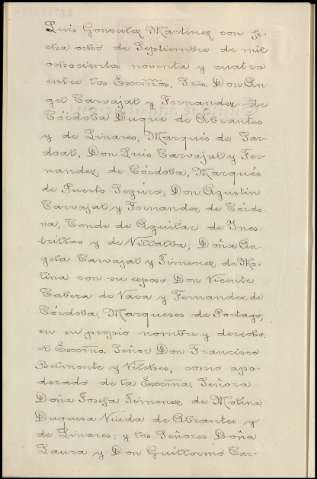 Luis Gonzalez Martinez con fe-
cha ocho de Septiembre de mil
ochocientos noventa y cuatro
entre los Excmos. Sres. Don An-
gel Carvajal y Fernandez de
Córdoba Duque de Abrantes
y de Linares, Marqués de Sar-
doal, Don Luis Carvajal y Fer-
nandez de Córdoba, Marqués
de Puerto Seguro, Don Agustin
Carvajal y Fernandez de Córdo-
va, Conde de Aguilar de Ines-
trillas y de Villalba; Doña An-
gela Carvajal y Jimenez de Mo-
lina con su esposo Don Vicente
Cabeza de Vaca y Fernandez de
Córdoba, Marqueses de Portago,
en su propio nombre y derecho,
el Excmo. Señor Don Francisco
Belmonte y Vilches, como apo-
derado de la Excma. Señora
Doña Josefa Jimenez de Molina
Duquesa Viuda de Abrantes y
de Linares; y los Señores Doña
Laura y Don Guillermo Car-